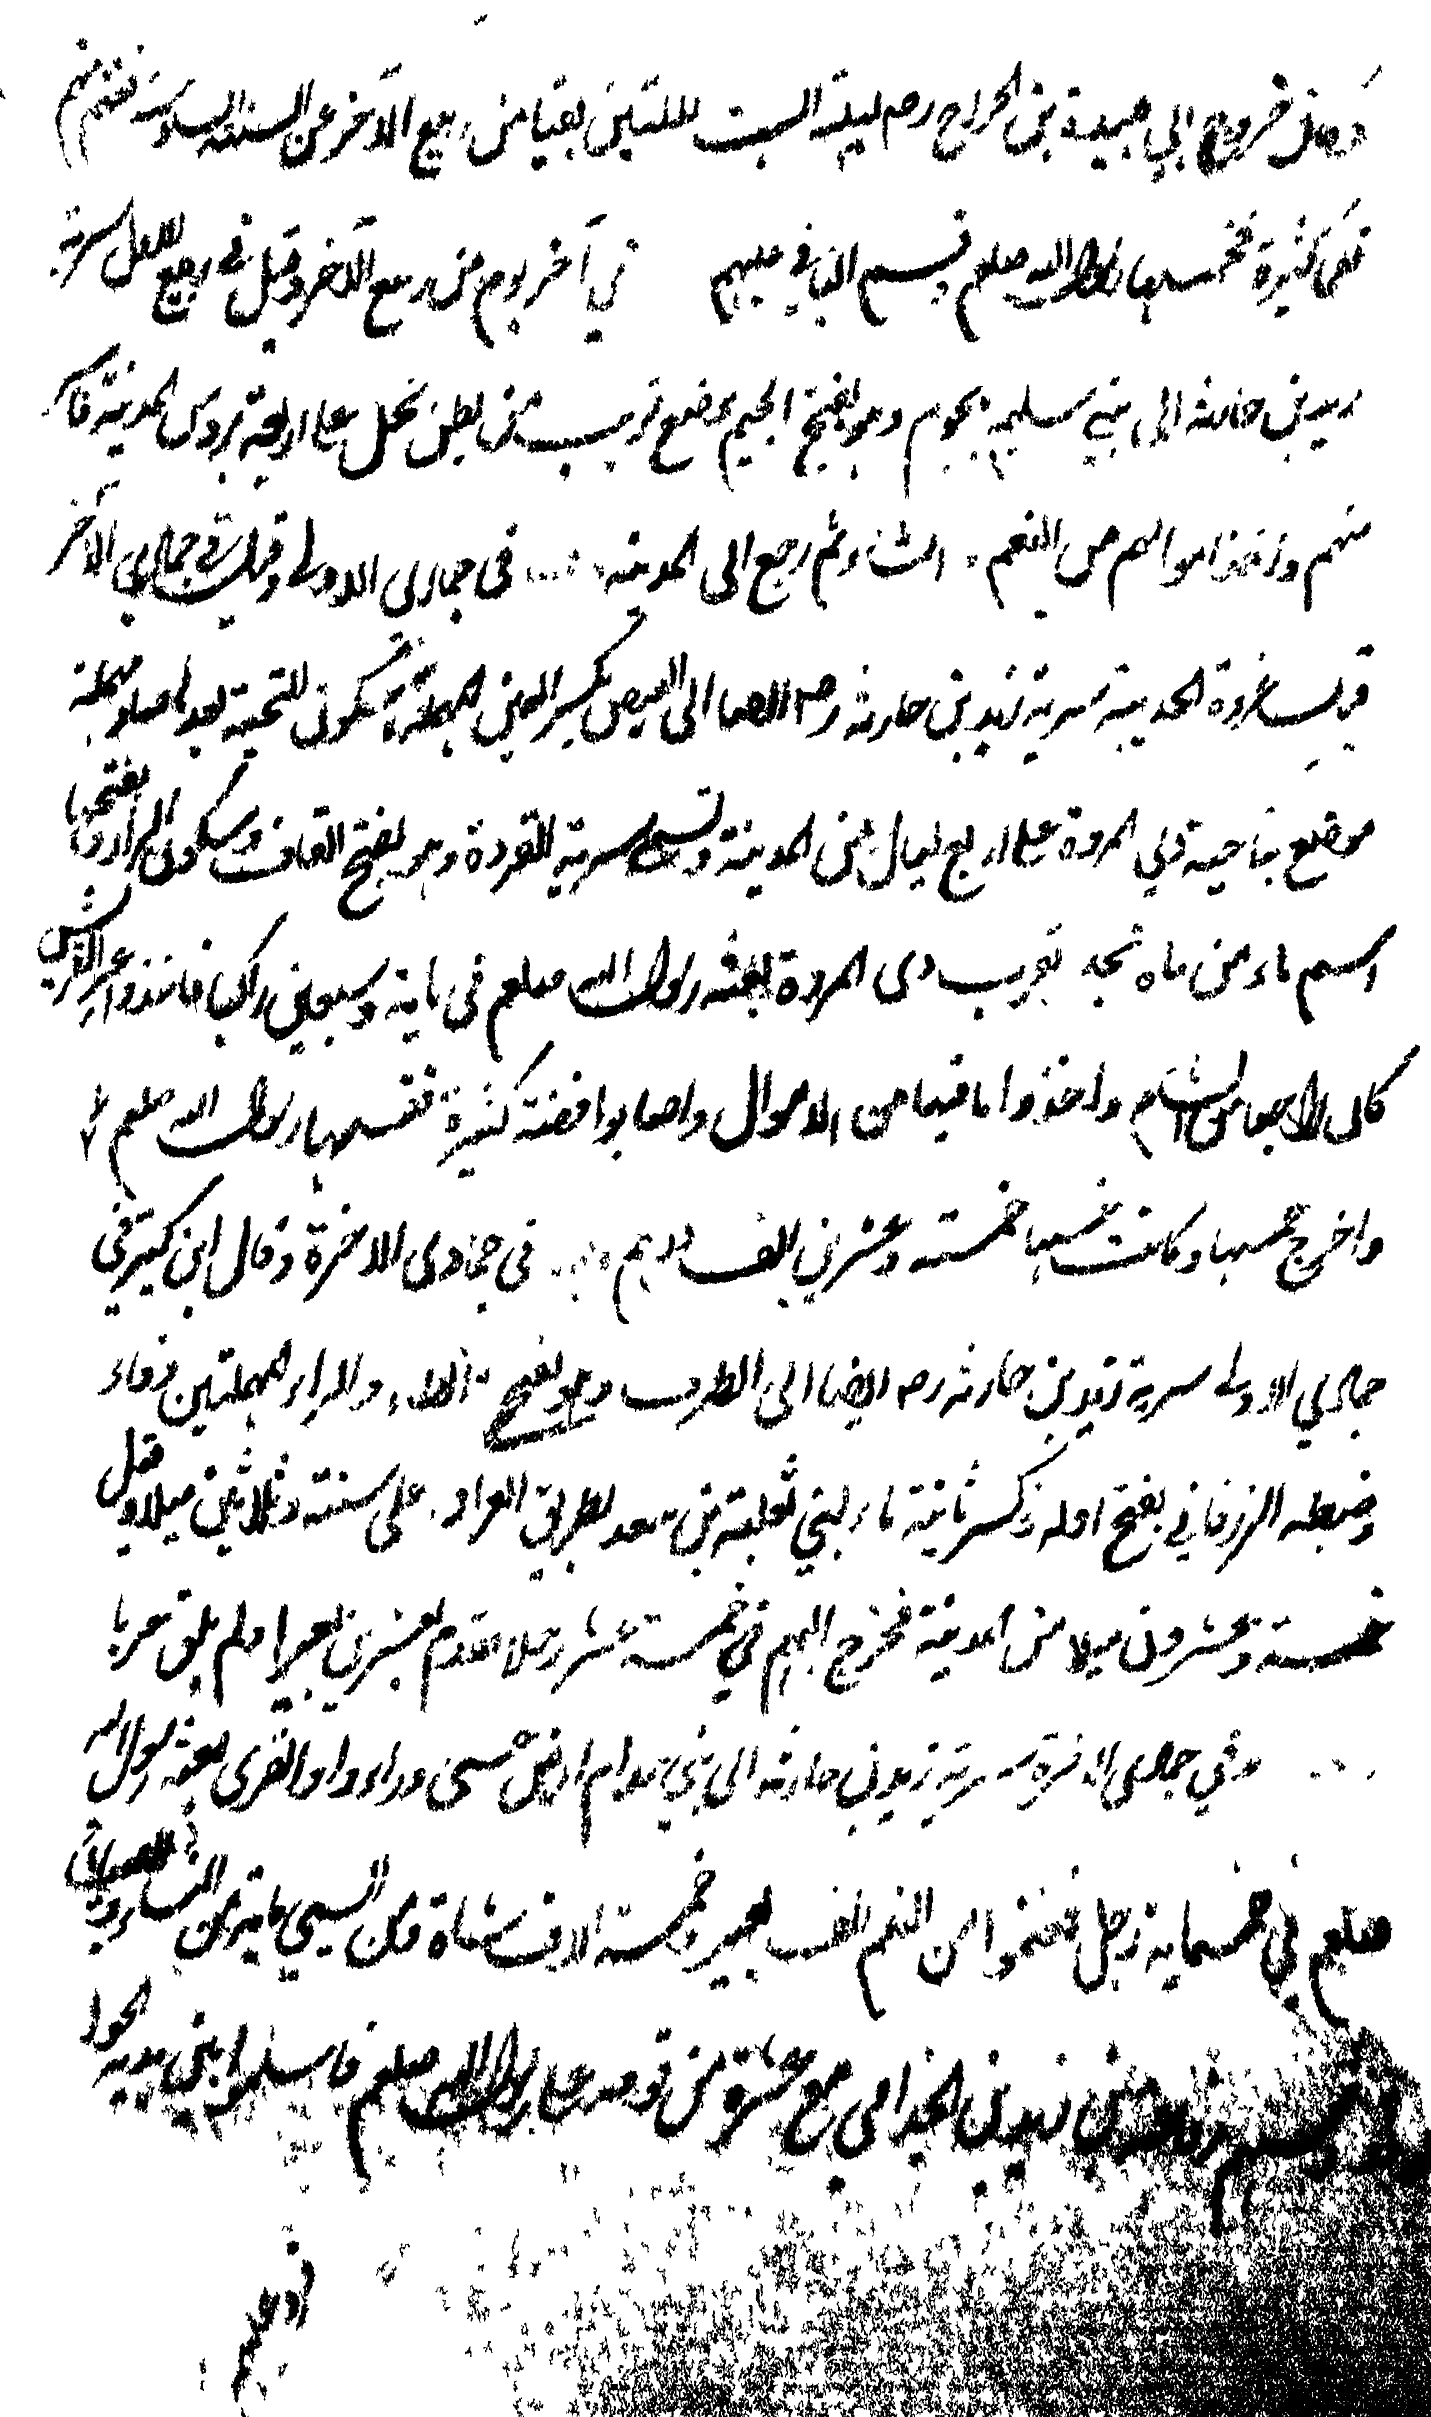 وكان خروج ابي عبيدة بن الجراح رضـ ليلة السبت لليلتين بقيتا من ربيع الآخر من السنة السادسة فغنم منهم
نعما كثيرة فخمسها رسول الله صلعم وقسم الباقي عليهم في آخر يوم من ربيع الآخر وقيل في ربيع الاول سرية
زيد بن حارثة الى بني سليم بجموم وهو بفتح الجيم موضع قريب من بطن نخل على اربعة برد من المدينة فاسر
منهم واخذ اموالهم من النعم والشاء ثم رجع الى المدينة في جمادى الاولى وقيل في جمادى الآخر
قبل غزوة الحديبية سرية زيد بن حارثة رضـ ايضا الى العيص بكسر العين المهملة وسكون التحتية بعدها صاد مهملة
موضع بناحية ذي المروة على اربع ليال من المدينة وتسمى سرية القردة وهو بفتح القاف وسكون الراء وبفتحها
اسم ماء من ماه نجد بقرب ذي المروة بعثه رسول الله صلعم في ماية وسبعين راكبا فاخذوا عير القريش
كان جاء من الشام واخذوا ما فيها من الاموال واصابوا فضة كثيرة فقسمها رسول الله صلعم
واخرج خمسها وكانت خمسها خمسة وعشرين الف درهم في جمادى الآخرة وقال ابن كثير في
جمادى الاولى سرية زيد بن حارثة رضـ ايضا الى الطرف وهو بفتح الطاء والراء المهملتين وفاء
وضبطه الزرقاني بفتح اوله وكسر ثانية ماء لبني ثعلبة بن سعد بطريق العراق على ستة وثلاثين ميلا وقيل
خمسة وعشرون ميلا من المدينة فخرج اليهم في خمسة عشر رجلا فقدم بعشرين بعيرا ولم يلق حربا
وفي جمادى الآخرة سرية زيد بن حارثة الى بني جذام ارض حسمى وراء واد القرى بعثه رسول الله
صلعم في خمسماية رجل فغنموا من النعم الف بعير وخمسة الاف شاة ومن السبي ماية من النساء والصبيان
زيد بن الجذامي مع عشرة من قومه على رسول الله صلعم فاسلموا بين يديه